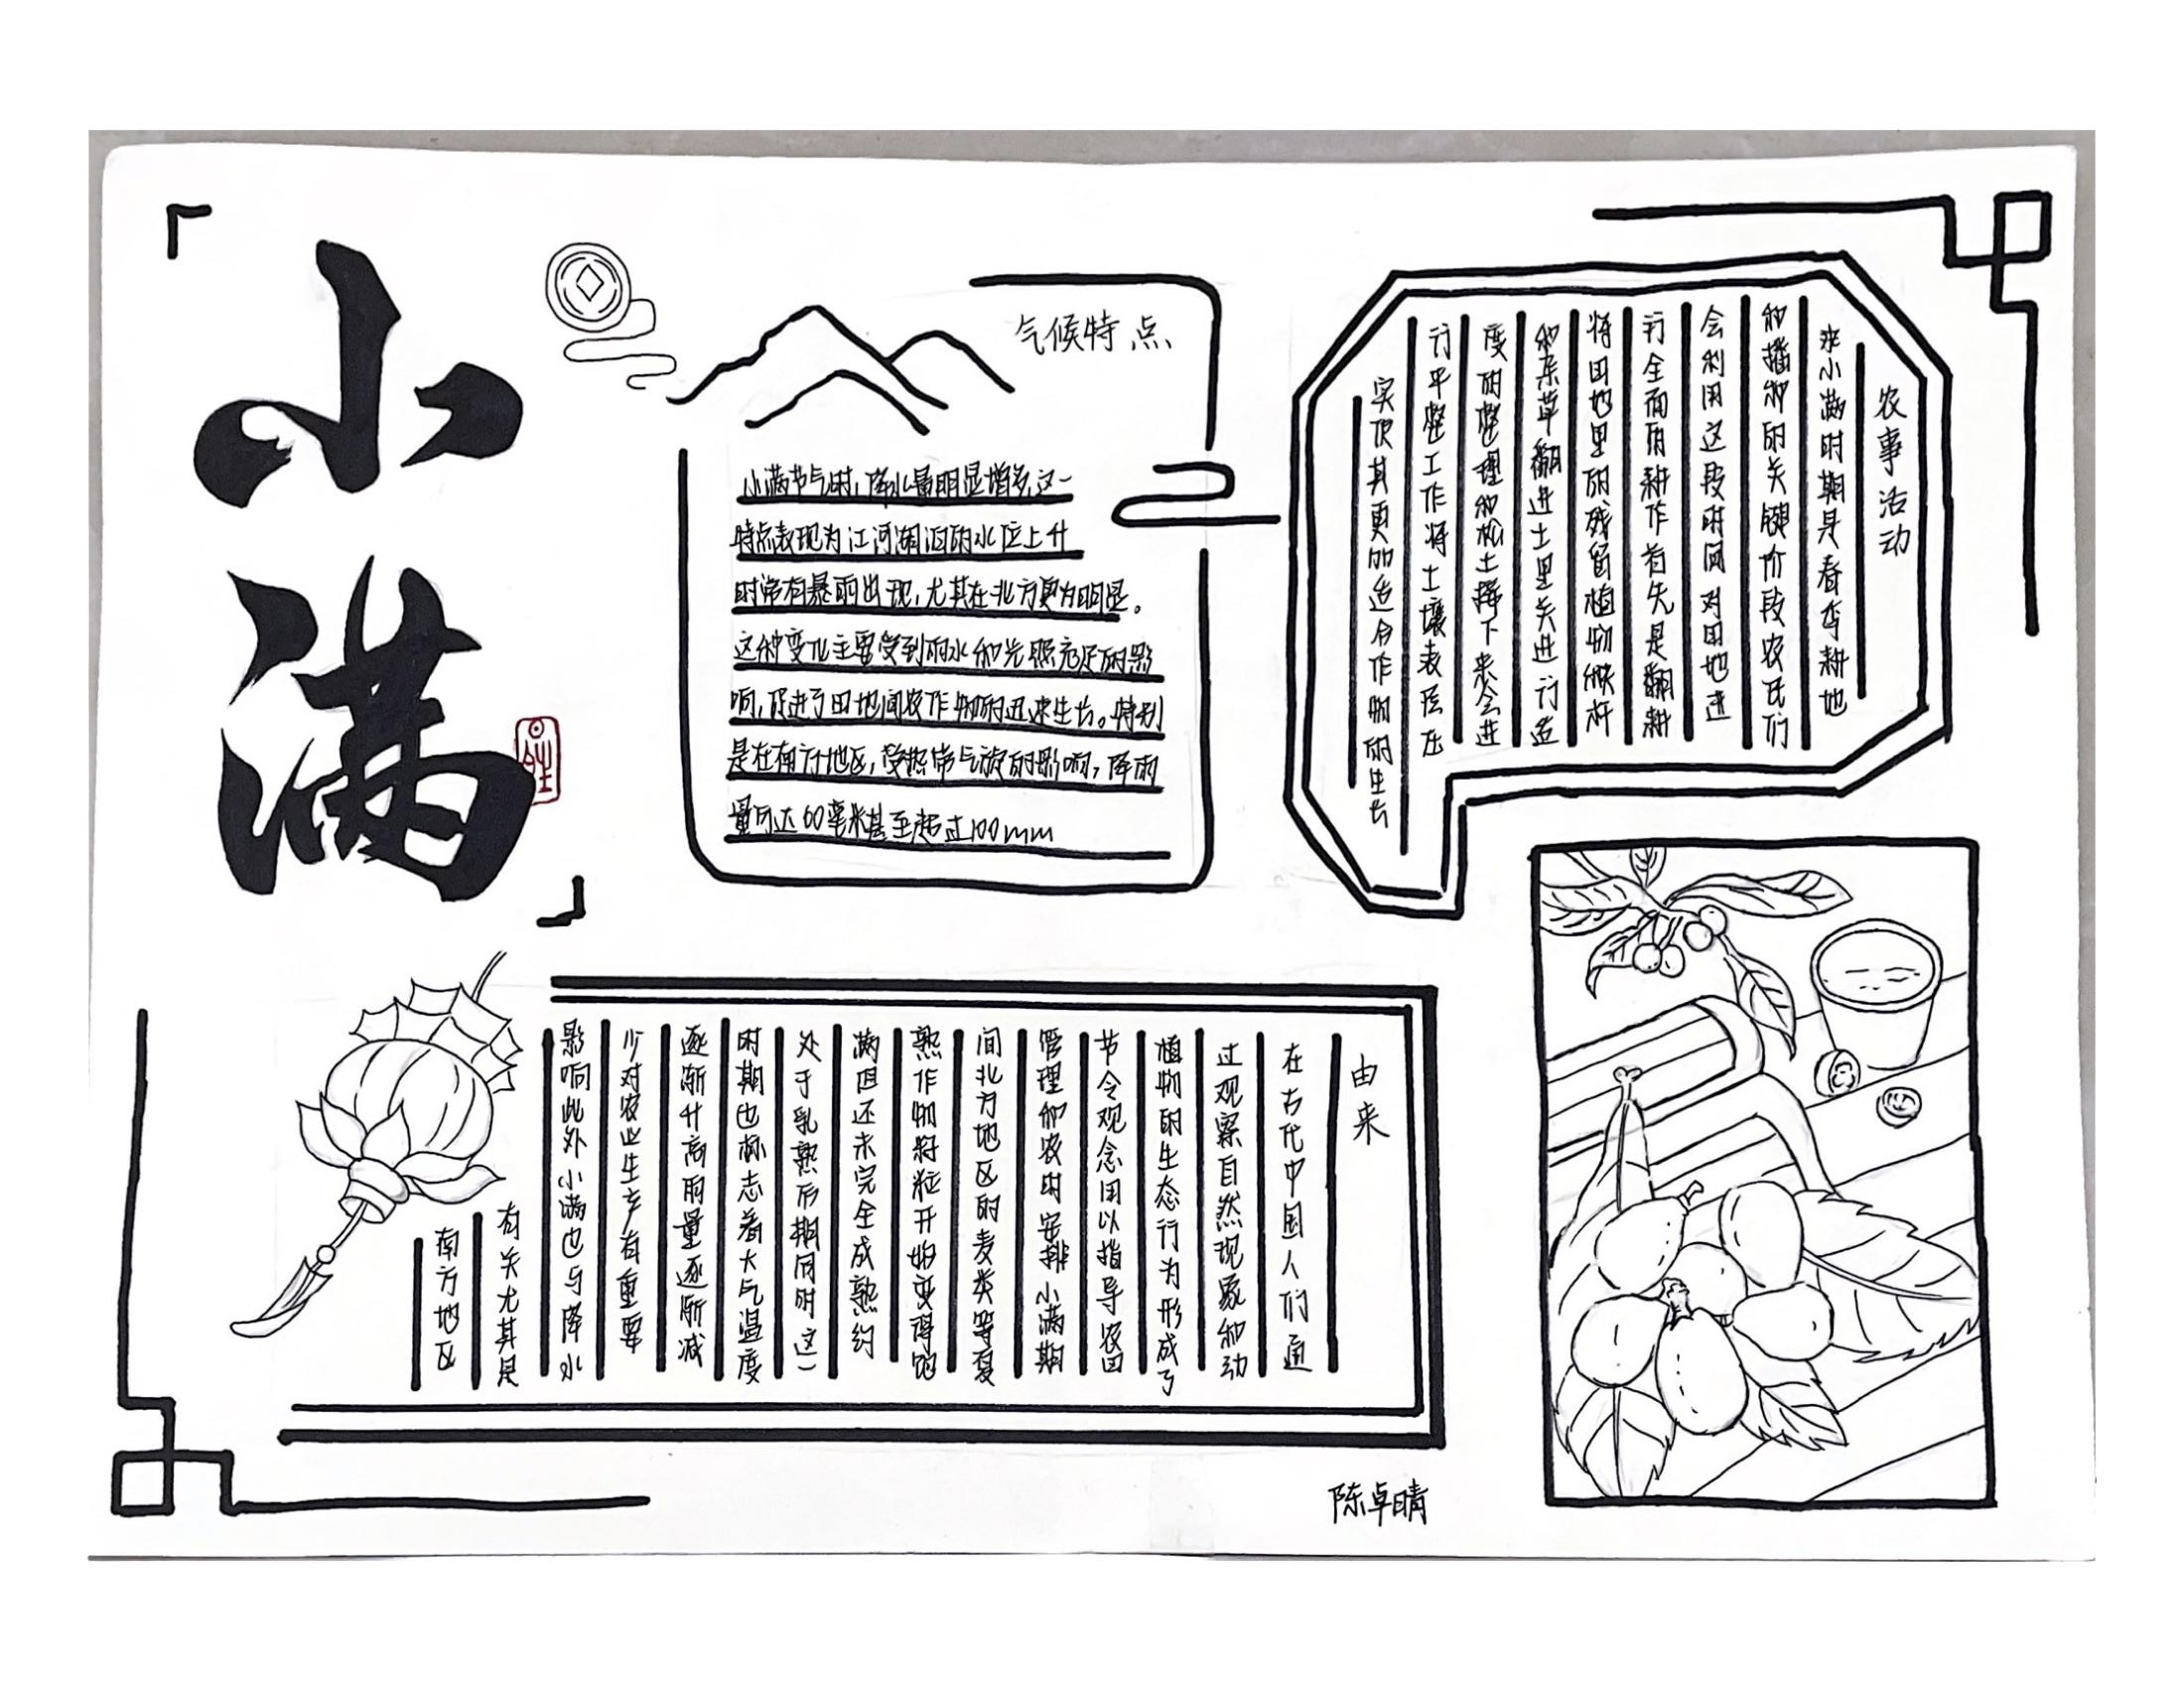 小满
气候特点
小满节气时,降水量明显增多,这一
特点表现为江河湖泊的水位上升
时常有暴雨出现,尤其在北方更为明显。
这种变化主要受到雨水和光照充足的影
响,促进了田地间农作物的迅速生长。特别
是在南方地区,受热带气旋的影响,降雨
量可达60毫米甚至超过100mm
农事活动
来小满时期是春季耕地
和播种的关键阶段农民们
会利用这段时间对田地进
行全面的耕作首先是翻耕
将田地里的残留植物秸秆
和杂草翻进土里关进行适
度的整理和松土接下来会进
行平整工作将土壤表层压
实使其更加适合作物的生长
由来
在古代中国人们通
过观察自然现象和动
植物的生态行为形成了
节令观念用以指导农田
管理和农时安排小满期
间北方地区的麦类等夏
熟作物籽粒开始变得饱
满但还未完全成熟约
处于乳熟后期同时这一
时期也标志着大气温度
逐渐升高雨量逐渐减
少对农业生产有重要
影响此外小满也与降水
有关尤其是
南方地区
陈卓晴